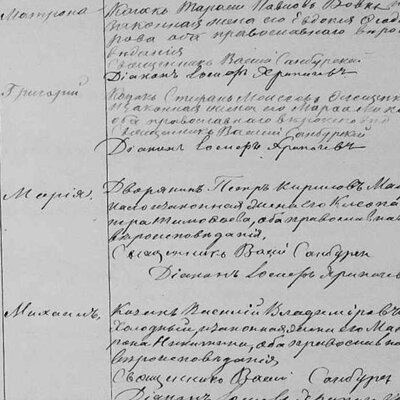 Матрона
Козакъ Тарасій Павловъ Вовкъ
и законная жена его Евдокія Ѳедо
рова оба православнаго вѣро
исповѣданія
Священникъ Василій Самбурскій
Діаконъ Іосифъ
Григорій
Козакъ Стефанъ Моисеевъ
и законная жена его
оба православнаго вѣроисповѣд
Священникъ Василій Самбурскій
Діаконъ Іосифъ
Марія,
Дворянинъ Петръ Кириловъ
и законная жена его Клеопа
тра Тимофеева, оба православна
вѣроисповѣданія,
Священникъ Васи Самбурск
Діаконъ Іосифъ
Михаилъ,
Козакъ Василій Владиміровъ
Холодный, и законная жена его Мат
рона Никитина, оба православна
вѣроисповѣданія,
Священникъ Васи Самбурск
Діаконъ Іосифъ